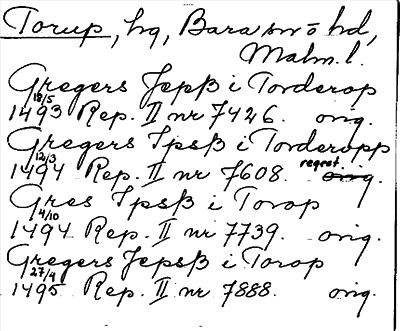 Torup, hg, Bara sn o hd,
Malm. l.
Gregers Jepß i Torderop
18/5 1493 Rep. II nr 7426. orig.
Gregers Ipsß i Torderopp
12/3 1494 Rep. II nr 7608. regest. orig.
Gres Ipsß i Torop
4/10 1494 Rep. II nr 7739. orig.
Gregers Jepsß i Torop
27/4 1495 Rep. II nr 7888. orig.